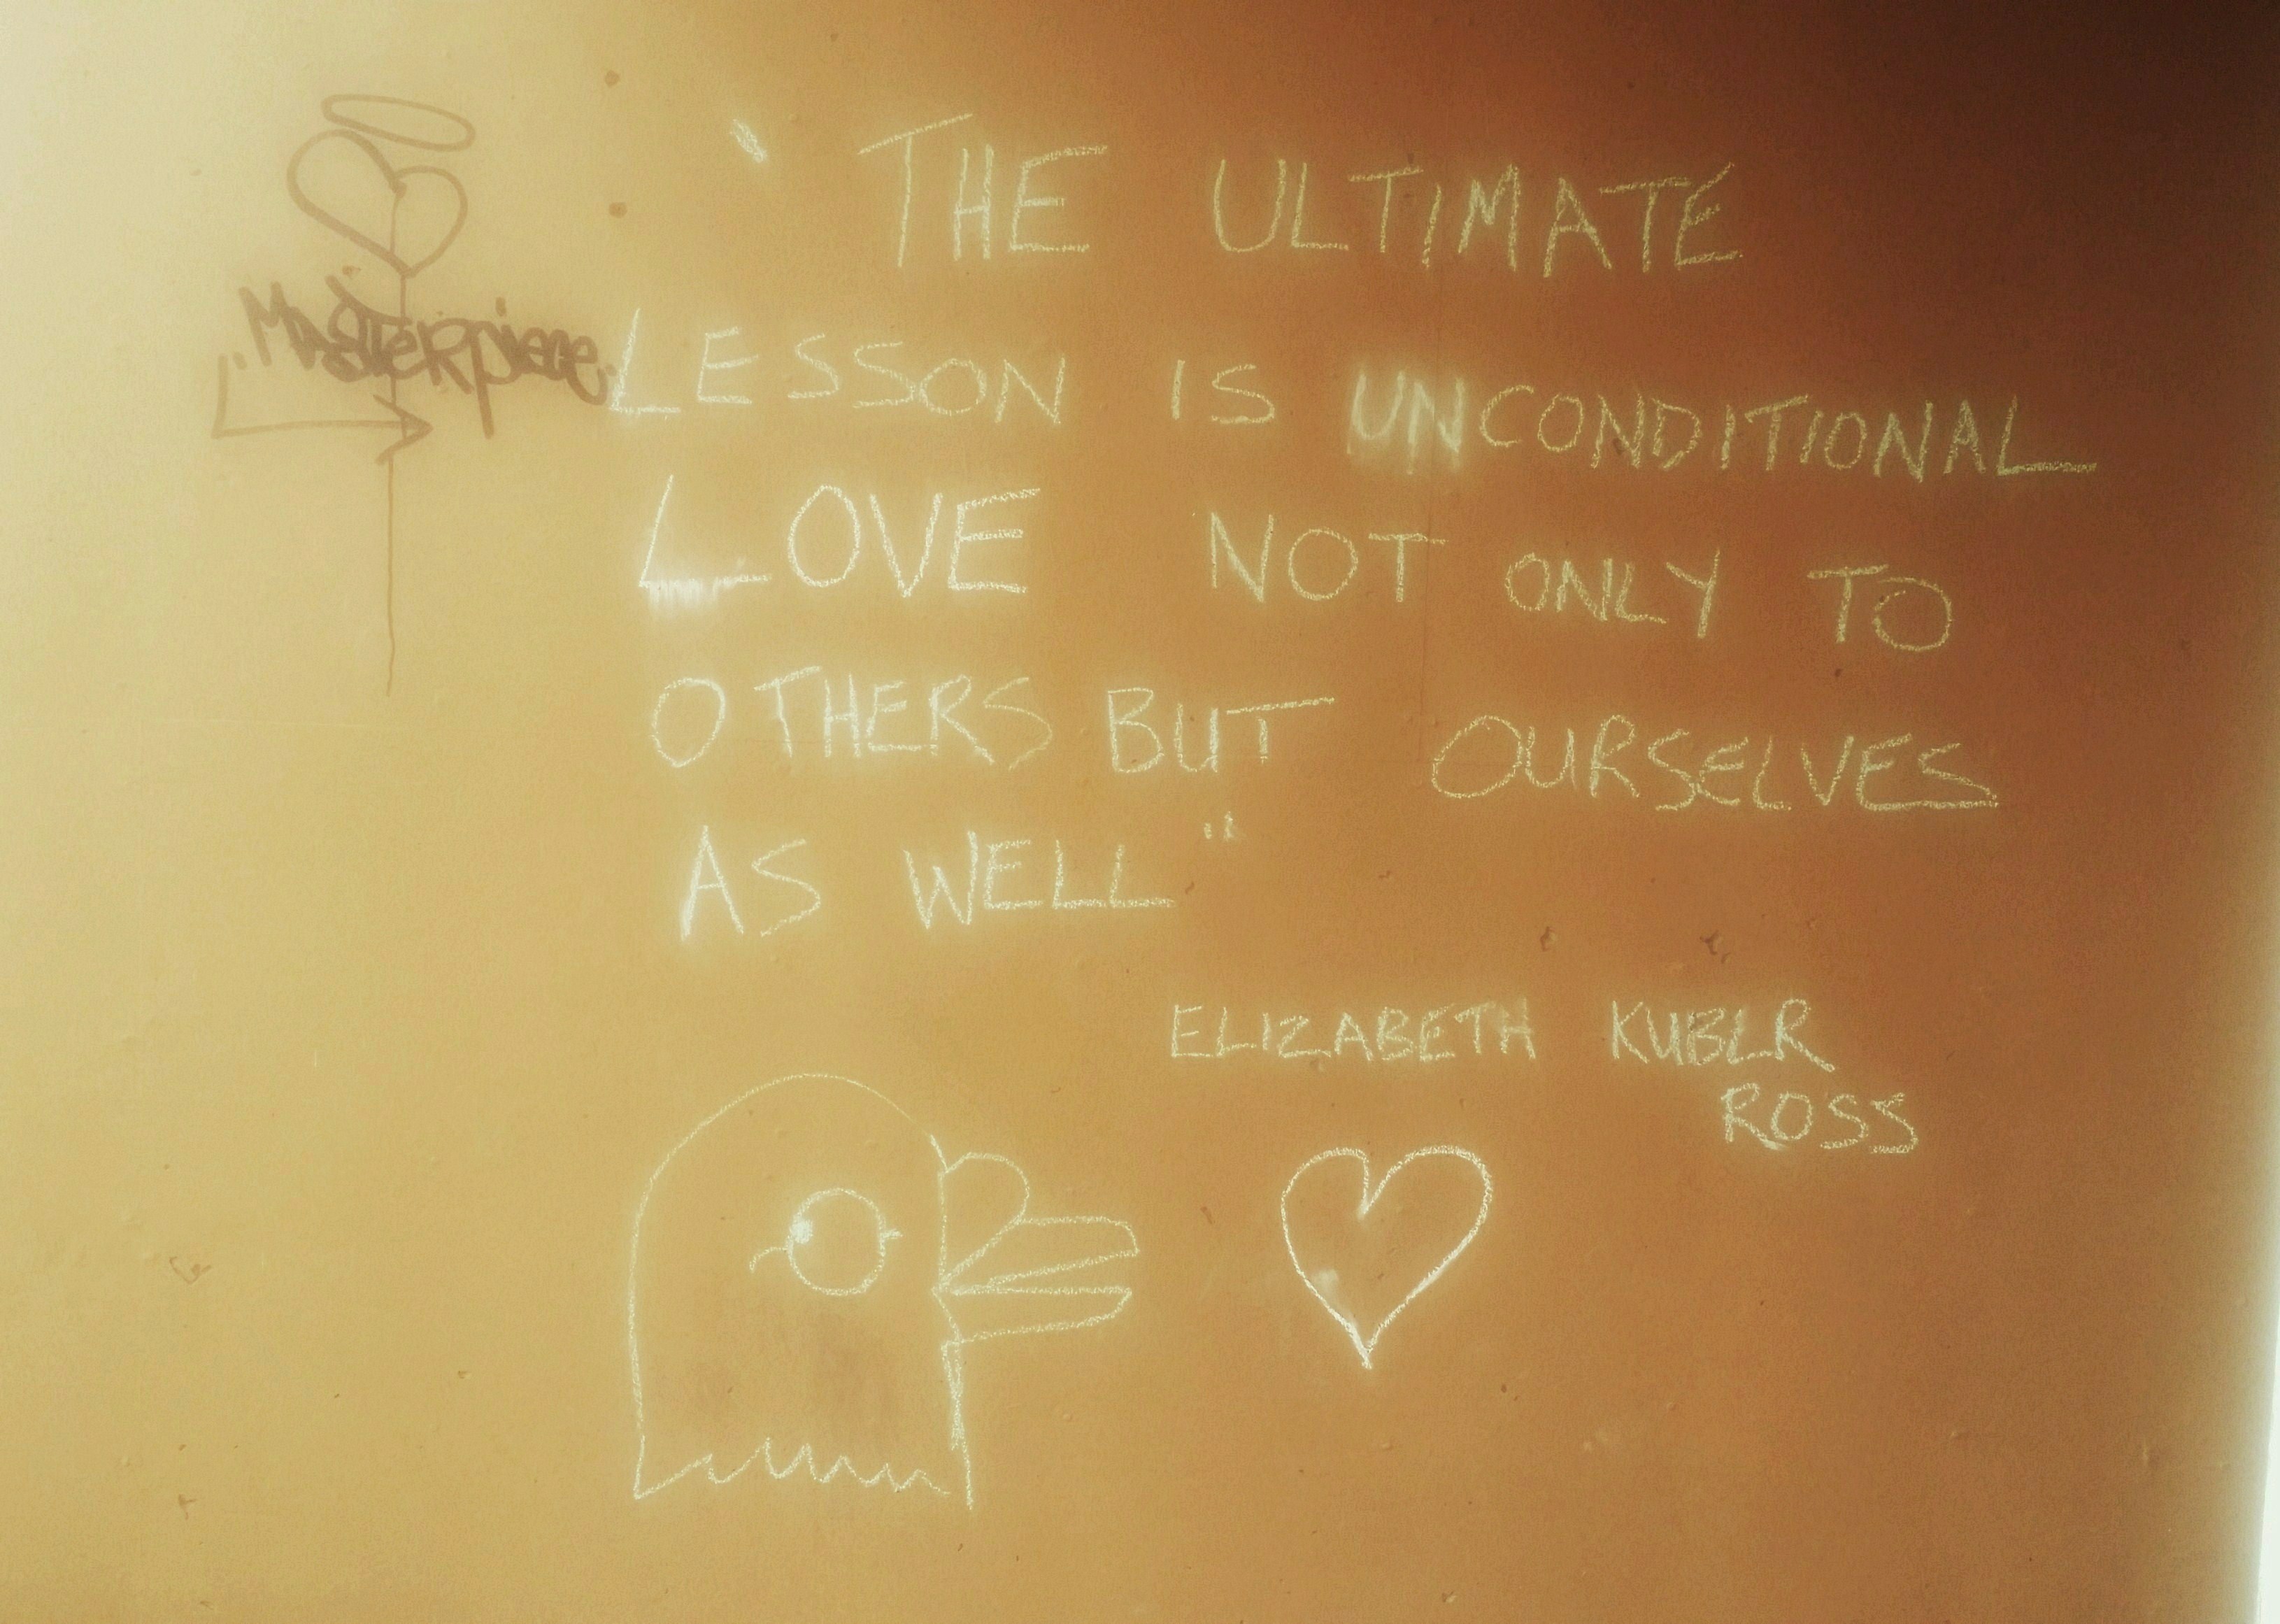 ` THE ULTIMATE
LESSON IS UNCONDITIONAL
LOVE NOT ONLY TO
OTHERS BUT OURSELVES
AS WELL"
ELIZABETH KUBLR
ROSS
"MASTERPIECE"